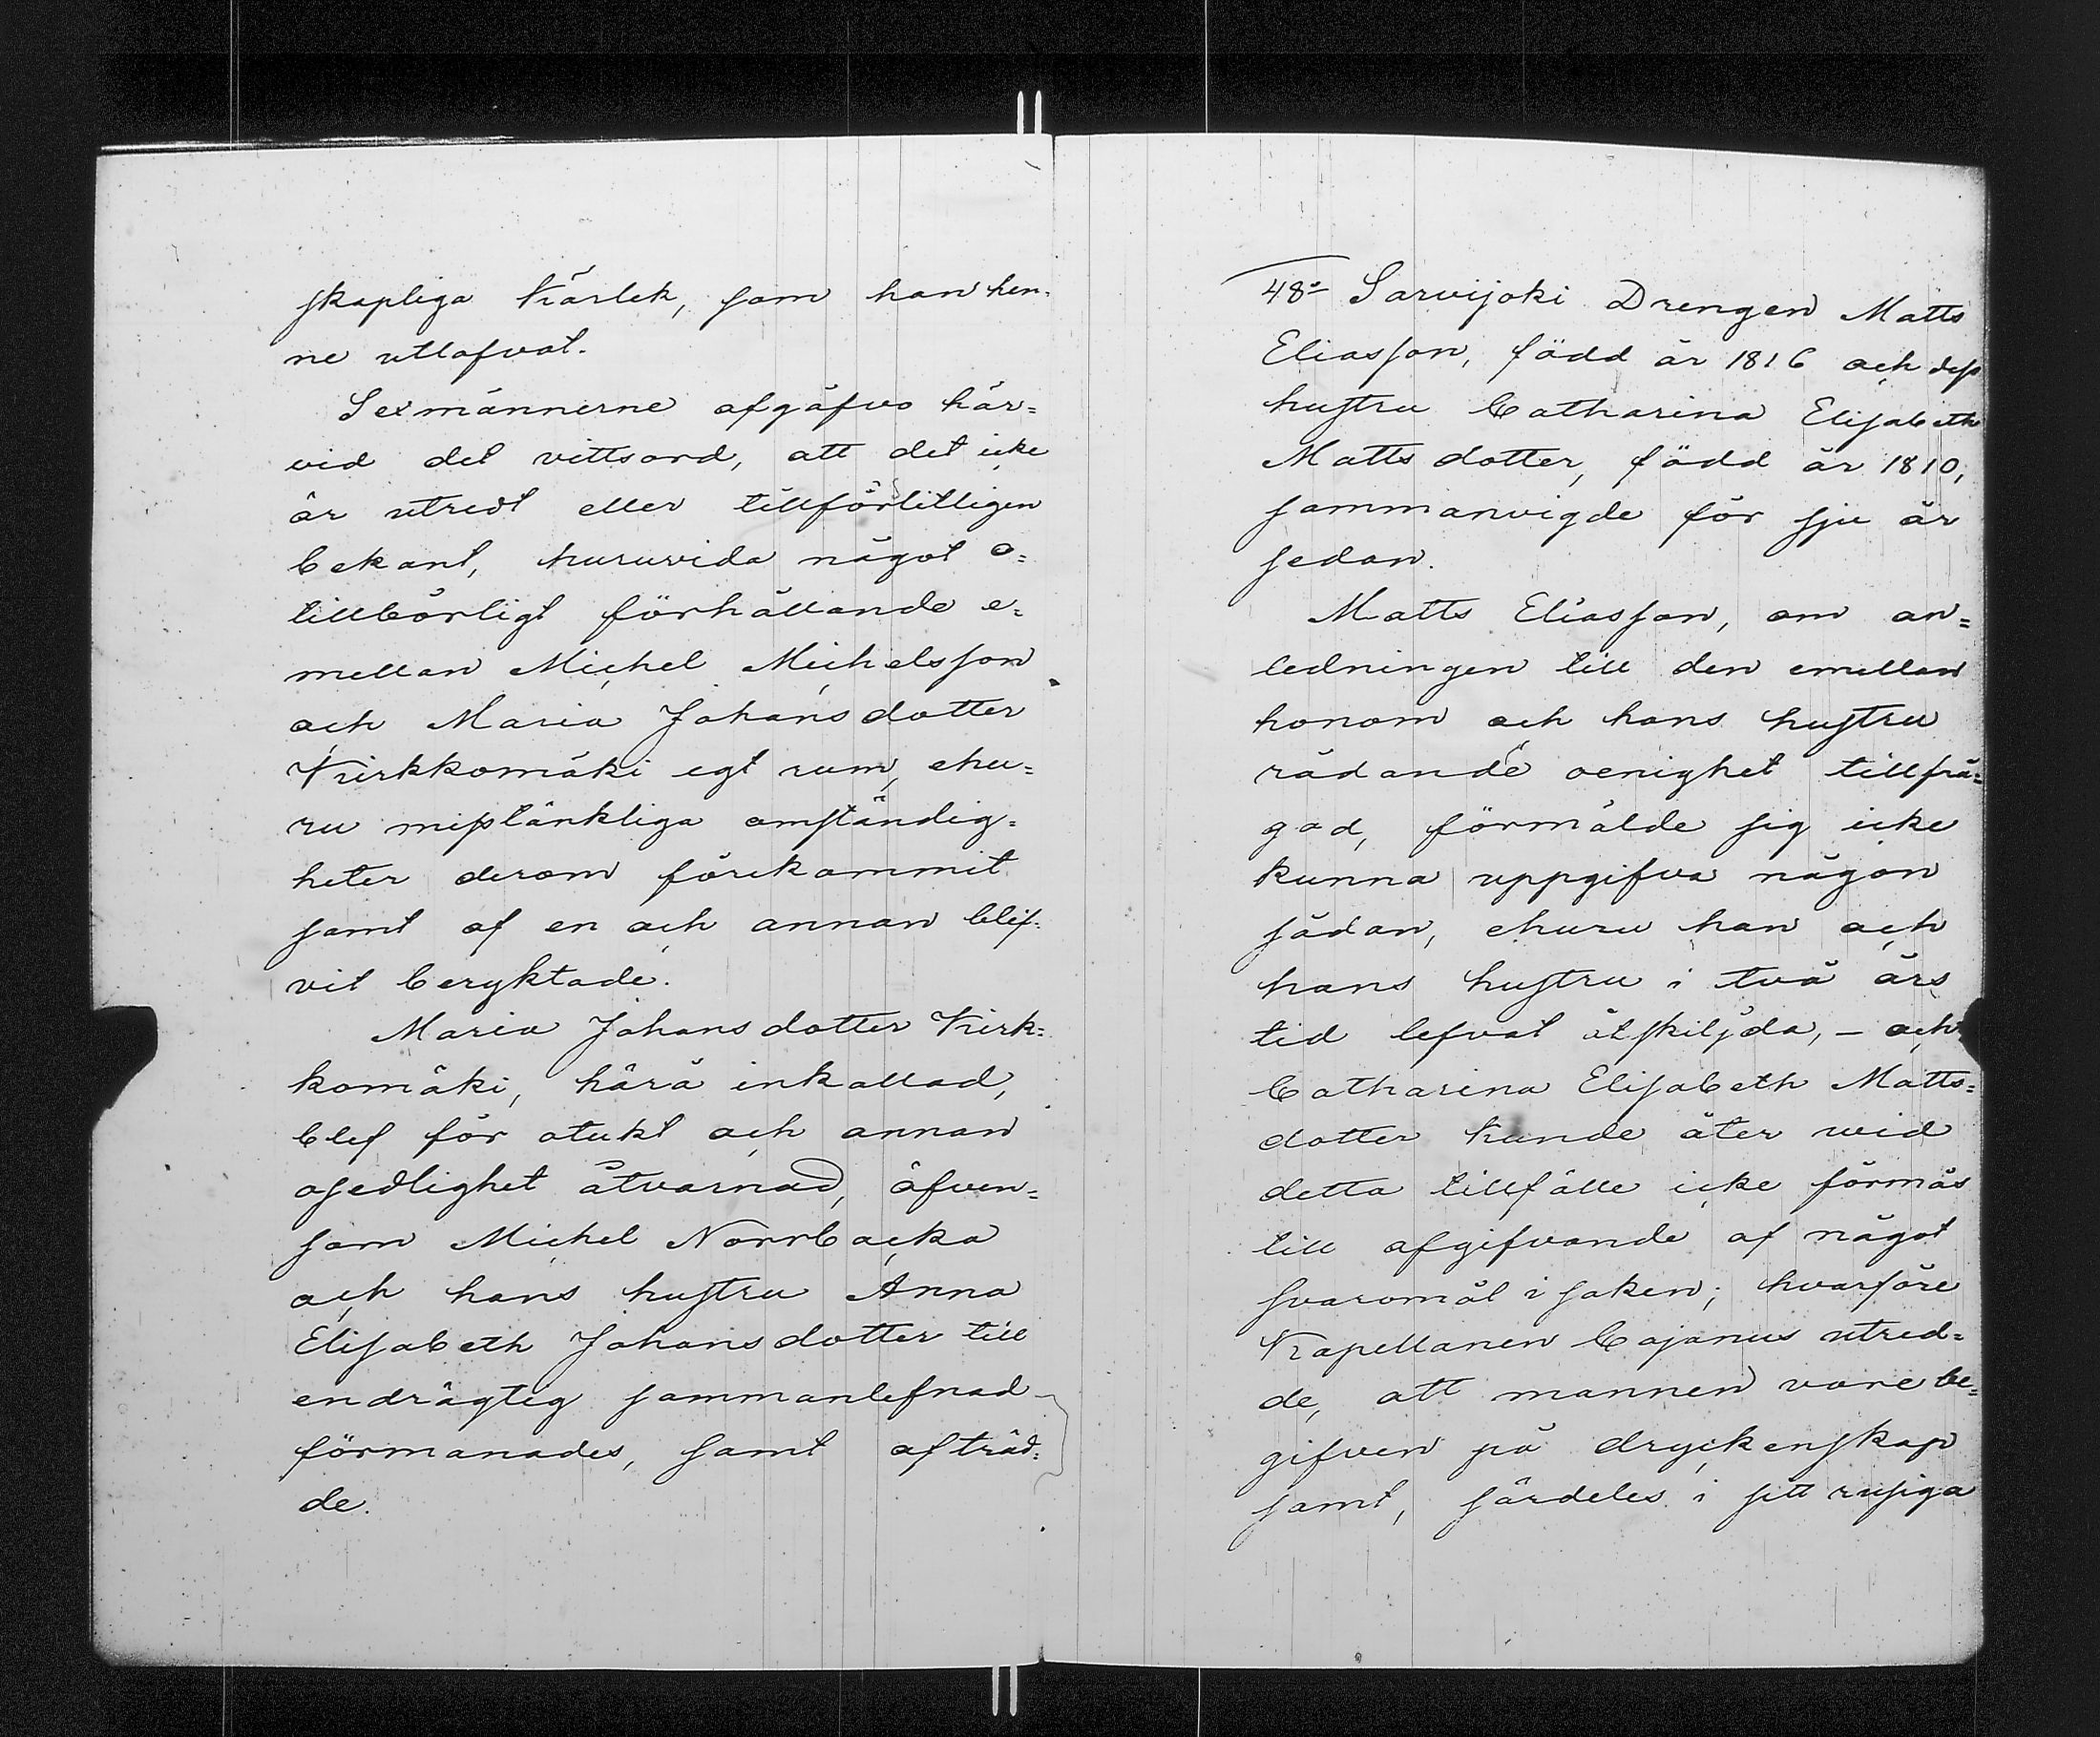 skapliga kärlek, som han hen-
ne utlofvat.
Sexmännerne afgåfvo här=
vid det vittsord, att det icke
är utredt eller tillförlitligen
bekant, huruvida något o=
tillbörligt förhållande e=
mellan Michel Michelsson
och Maria Johansdotter
Kirkkomäki egt rum, ehu=
ru misstänkliga omständig=
heter derom förekommit
samt af en och annan blif-
vit beryktade.
Maria Johansdotter Kirk=
komäki, härå inkallad,
blef för otukt och annan
osedlighet åtvarnad, äfven=
som Michel Norrbacka
och hans hustru Anna
Elisabeth Johansdotter till
endrägtig sammanlefnad
förmanades, samt afträd=
de.
48:o Sarvijoki Drengen Matts
Eliasson, född år 1816 och dess
hustru Catharina Elisabeth
Mattsdotter, född år 1810,
sammanvigde för sju år
sedan.
Matts Eliasson, om an=
ledningen till den emellan
honom och hans hustru
rådande oenighet tillfrå=
gad, förmälde sig icke
kunna uppgifva någon
sådan, ehuru han och
hans hustru i två års
tid lefvat åtskiljda, – och
Catharina Elisabeth Matts=
dotter kunde åter wid
detta tillfälle icke förmås
till afgifvande af något
svaromål i saken; hvarföre
Kapellanen Cajanus utred=
de, att mannen vore be=
gifven på dryckenskap
samt, särdeles i sitt rusiga